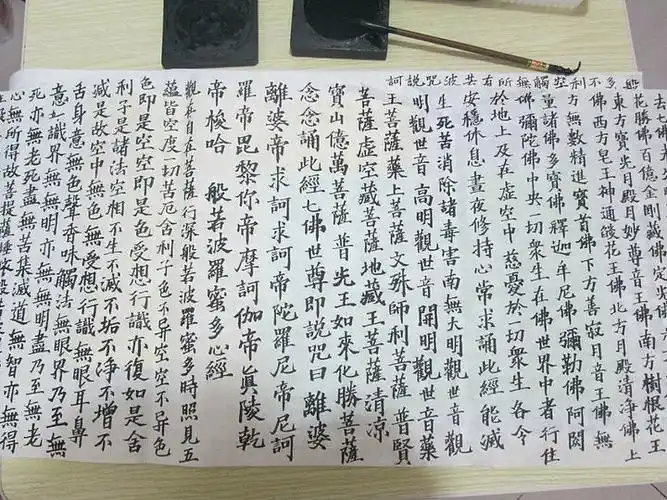 花勝佛百億金剛藏佛
東方寶光月殿月妙尊音王佛南方樹根花王
佛西方皂王神通燄花王佛北方月殿清淨佛上
方無數精進寶首佛下方善寂月音王佛無
量諸佛多寶佛釋迦牟尼佛彌勒佛阿閦
佛彌陀佛中央一切衆生在佛世界中者行住
於地上及在虛空中慈憂於一切衆生各令
安穩休息晝夜修持心常求誦此經能滅
生死苦消除諸毒害南無大明觀世音觀
明觀世音高明觀世音開明觀世音藥
王菩薩藥上菩薩文殊師利菩薩普賢
菩薩虛空藏菩薩地藏王菩薩清凉
寶山億萬菩薩普光王如來化勝菩薩
念念誦此經七佛世尊即説咒曰離婆
離婆帝求訶求訶帝陀羅尼帝尼訶
羅帝毘黎你帝摩訶伽帝真陵乾
帝梭哈 般若波羅蜜多心經
觀自在菩薩行深般若波羅蜜多時照見五
蘊皆空度一切苦厄舍利子色不异空空不异色
色即是空空即是色受想行識亦復如是舍
利子是諸法空相不生不滅不垢不净不增不
滅是故空中無色無受想行識無眼耳鼻
舌身意無色聲香味觸法無眼界乃至無
意識界無無明亦無無明盡乃至無老
死亦無老死盡無苦集滅道無智亦無得